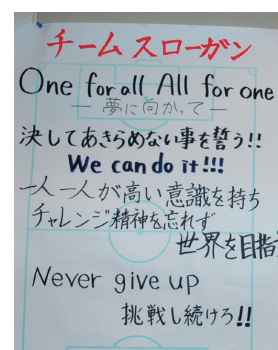 チームスローガン
One for all All for one
― 夢に向かって ―
決してあきらめない事を誓う!!
We can do it!!!
一人一人が高い意識を持ち
チャレンジ精神を忘れず
世界を目指
Never give up
挑戦し続けろ!!